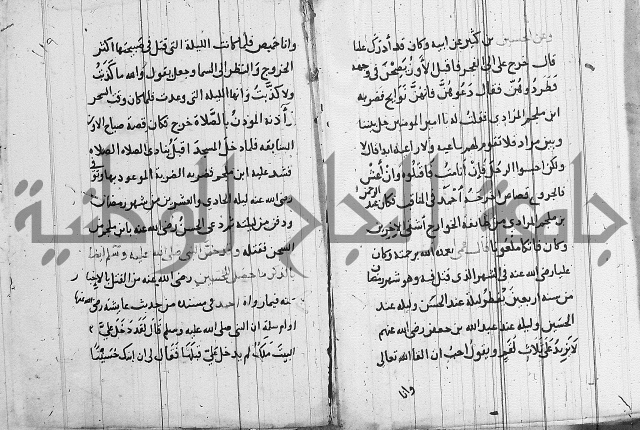 وعن الحسين بن كثير عن ابيه وكان قد أدرك عليا
قال خرج علي الى الفجر فاقبل الأوز يصحن في وجهه
فطردوهن فقال دعوهن فانهن نوايح فضربه
ابن ملجم المرادي فقلت له يا امير المومنين خل بيننا
وبين مراد فلا تقوم لهم ثاغية ولا راغية ابدا قال لا
ولكن احبسوا الرجل فإن انامت فاقتلوه وان اعش
فالجروح قصاص اخرجه أحمد في المناقب وكان عبد الرحمن
بن ملجم المرادي من طايفة الخوارج اشقى الاخرين
وكان فاتكا ملعونا بعده الله برحمته وكان
عليا رضي الله عنه في الشهر الذي قتل فيه وهو شهر رمضان
من سنة اربعين يفطر ليلة عند الحسن وليلة عند
الحسين وليلة عند عبد الله بن جعفر رضي الله عنهم
لا يزيد على ثلاث لقم ويقول احب ان القا الله تعالى
وانا
وانا خميص فلما كانت الليلة التي قتل في صبيحتها اكثر
الخروج والنظر الى السما وجعل يقول والله ما كذبت
ولا كذبت وانها الليلة التي وعدت فلما كان وقت السحر
أذنه الموذن بالصلاة خرج فكان قصة صياح الاوز
السابقه فلما دخل المسجد اقبل ينادي الصلاة الصلاه
فشد عليه ابن ملجم فضربه الضربة الموعود بها وتوفي
رضي الله عنه ليلة الحادي والعشرين من شهر رمضان
ودفن من ليلته ثم دعي الحسن رضي الله عنه بابن ملجم من
السجن فقتله النبي صلى الله عليه وسلم ايضا
الحسين رضي الله عنه من القتل
عنه فيما رواه احمد في مسنده من حديث عايشة رضي الله عنها
او ام سلمة ان النبي صلى الله عليه وسلم قال لقد دخل علي
البيت ملك لم يدخل علي قبلها فقال لي ان ابنك حسينا